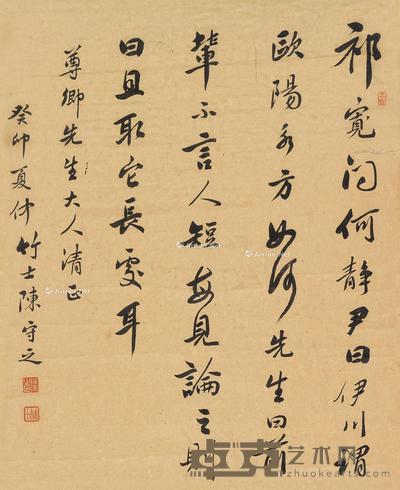 祁寬问何靜尹曰伊川谓
歐陽永方如何先生曰前
輩不言人短每見論之則
曰且取它長處耳
尊卿先生大人清正
癸卯夏仲竹士陳守之
卓克艺术网
zhuokearts.com